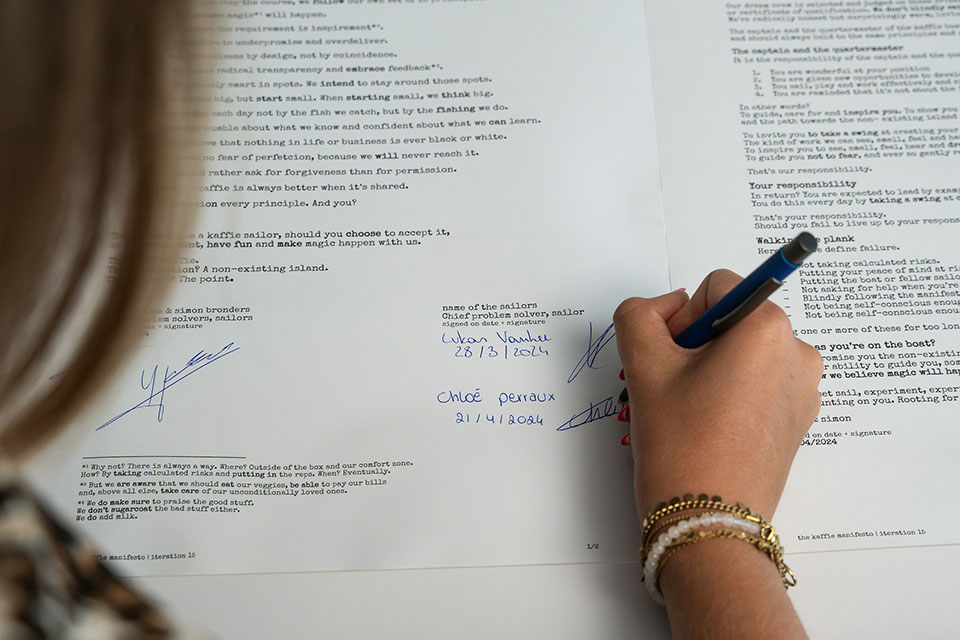 stay the course, we follow our own set of
magic*¹ will happen.
the requirement is inspirement*².
to undepromise and overdeliver.
ness by design, not by coincidence.
radical transparency and embrace feedback*³.
ly smart in spots. We intend to stay around those spots.
big, but start small. When starting small, we think big.
each day not by the fish we catch, but by the fishing we do.
umble about what we know and confident about what we can learn.
eve that nothing in life or business is ever black or white.
no fear of perfetcion, because we will never reach it.
rather ask for forgiveness than for permission.
kaffie is always better when it's shared.
on every principle. And you?
a kaffie sailor, should you choose to accept it,
nt, have fun and make magic happen with us.
fie.
ion? A non-existing island.
The point.
& simon bronders
lem solvers, sailors
ed on date + signature
name of the sailors
Chief problem solver, sailor
signed on date + signature
Lukas Vanhee
28/3/2024
Chloé Perraux
21/4/2024
*¹ Why not? There is always a way. Where? Outside of the box and our comfort zone.
How? By taking calculated risks and putting in the reps. When? Eventually.
*² But we are aware that we should eat our veggies, be able to pay our bills
and, above all else, take care of our unconditionally loved ones.
*³ We do make sure to praise the good stuff.
We don't sugarcoat the bad stuff either.
We do add milk.
ffie manifesto | iteration 15
1/2
Our dream crew is selected and judged on
or certificate of qualification. We don't blindly
We're radically honest but surprisingly warm,
The captain and the quartermaster of the kaffie
and should always hold to the same principles and
The captain and the quartermaster
It is the responsibility of the captain and the
1. You are wonderful at your position
2. You are given new opportunities to
3. You sail, play and work effectively and
4. You are reminded that it's not about the
In other words?
To guide, care for and inspire you. To show you
and the path towards the non-existing island
To invite you to take a swing at creating your
The kind of work we can see, smell, feel and
To inspire you to see, smell, feel, hear and
To guide you not to fear, and ever so gently
That's our responsibility.
Your responsibility
In return? You are expected to lead by
You do this every day by taking a swing at
That's your responsibility.
Should you fail to live up to your
Walking the plank
Here we define failure.
Not taking calculated risks.
- Putting your peace of mind at
- Putting the boat or fellow
- Not asking for help when you're
- Blindly following the
- Not being self-conscious
- Not being self-conscious
ng one or more of these for too
as you're on the boat?
omise you the non-existing
r ability to guide you,
w we believe magic will
et sail, experiment,
unting on you. Rooting for
simon
ed on date + signature
04/2024
the kaffie manifesto | iteration 15